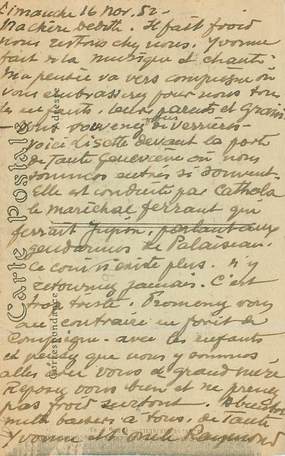 Dimanche 16 Nov. 52 -
Ma chère Dédette. Il fait froid
nous restons chez nous. Yvonne
fait de la musique et chante.
Ma pensée va vers Compiègne où
vous embrasserez pour nous tous
les enfants, leurs parents et Grand
- Vous souvenez de Verrières
Voici Lisette devant la porte
de Tante Geneviève où nous
sommes entrés si souvent.
Elle est conduite par Cathola
le maréchal ferrant qui
ferrait Jupin, partant aux
gendarmes de Palaiseau.
Ce coin n'existe plus. N'y
retournez jamais. C'est
trop triste. Promenez vous
au contraire en forêt de
Compiègne avec les enfants
et pensez que nous y sommes
allés avec vous et grand mère
Reposez vous bien et ne prenez
pas froid surtout.
mille baisers à tous, de Tante
Yvonne et oncle Raymond
Carte Postale
Correspondance